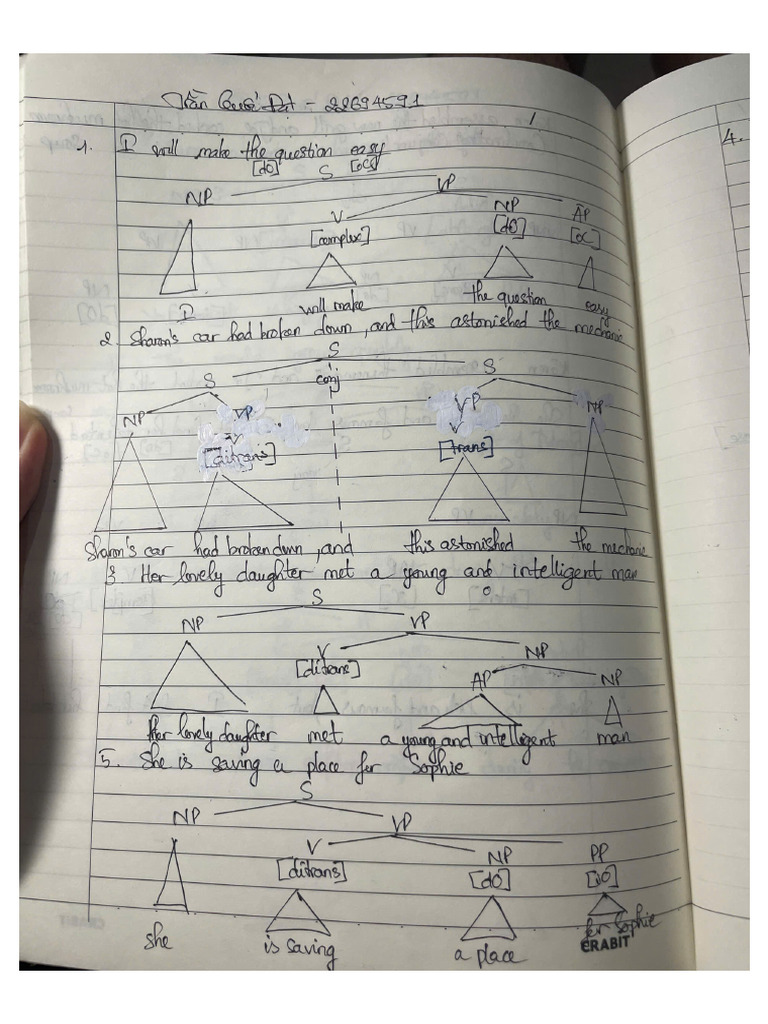 Trần Quốc Đạt - 22694591
1. I will make the question easy
[dO] [oC]
S
NP VP
V NP AP
[complex] [dO] [oC]
I will make the question easy
2. Sharon's car had broken down, and this astonished the mechanic
S
S conj S
NP VP VP NP
V V
[ditrans] [trans]
Sharon's car had broken down , and this astonished the mechanic
3. Her lovely daughter met a young and intelligent man
S
NP VP
V NP
[ditrans] AP NP
Her lovely daughter met a young and intelligent man
5. She is saving a place for Sophie
S
NP VP
V NP PP
[ditrans] [dO] [iO]
she is saving a place for Sophie
ERABIT
4.